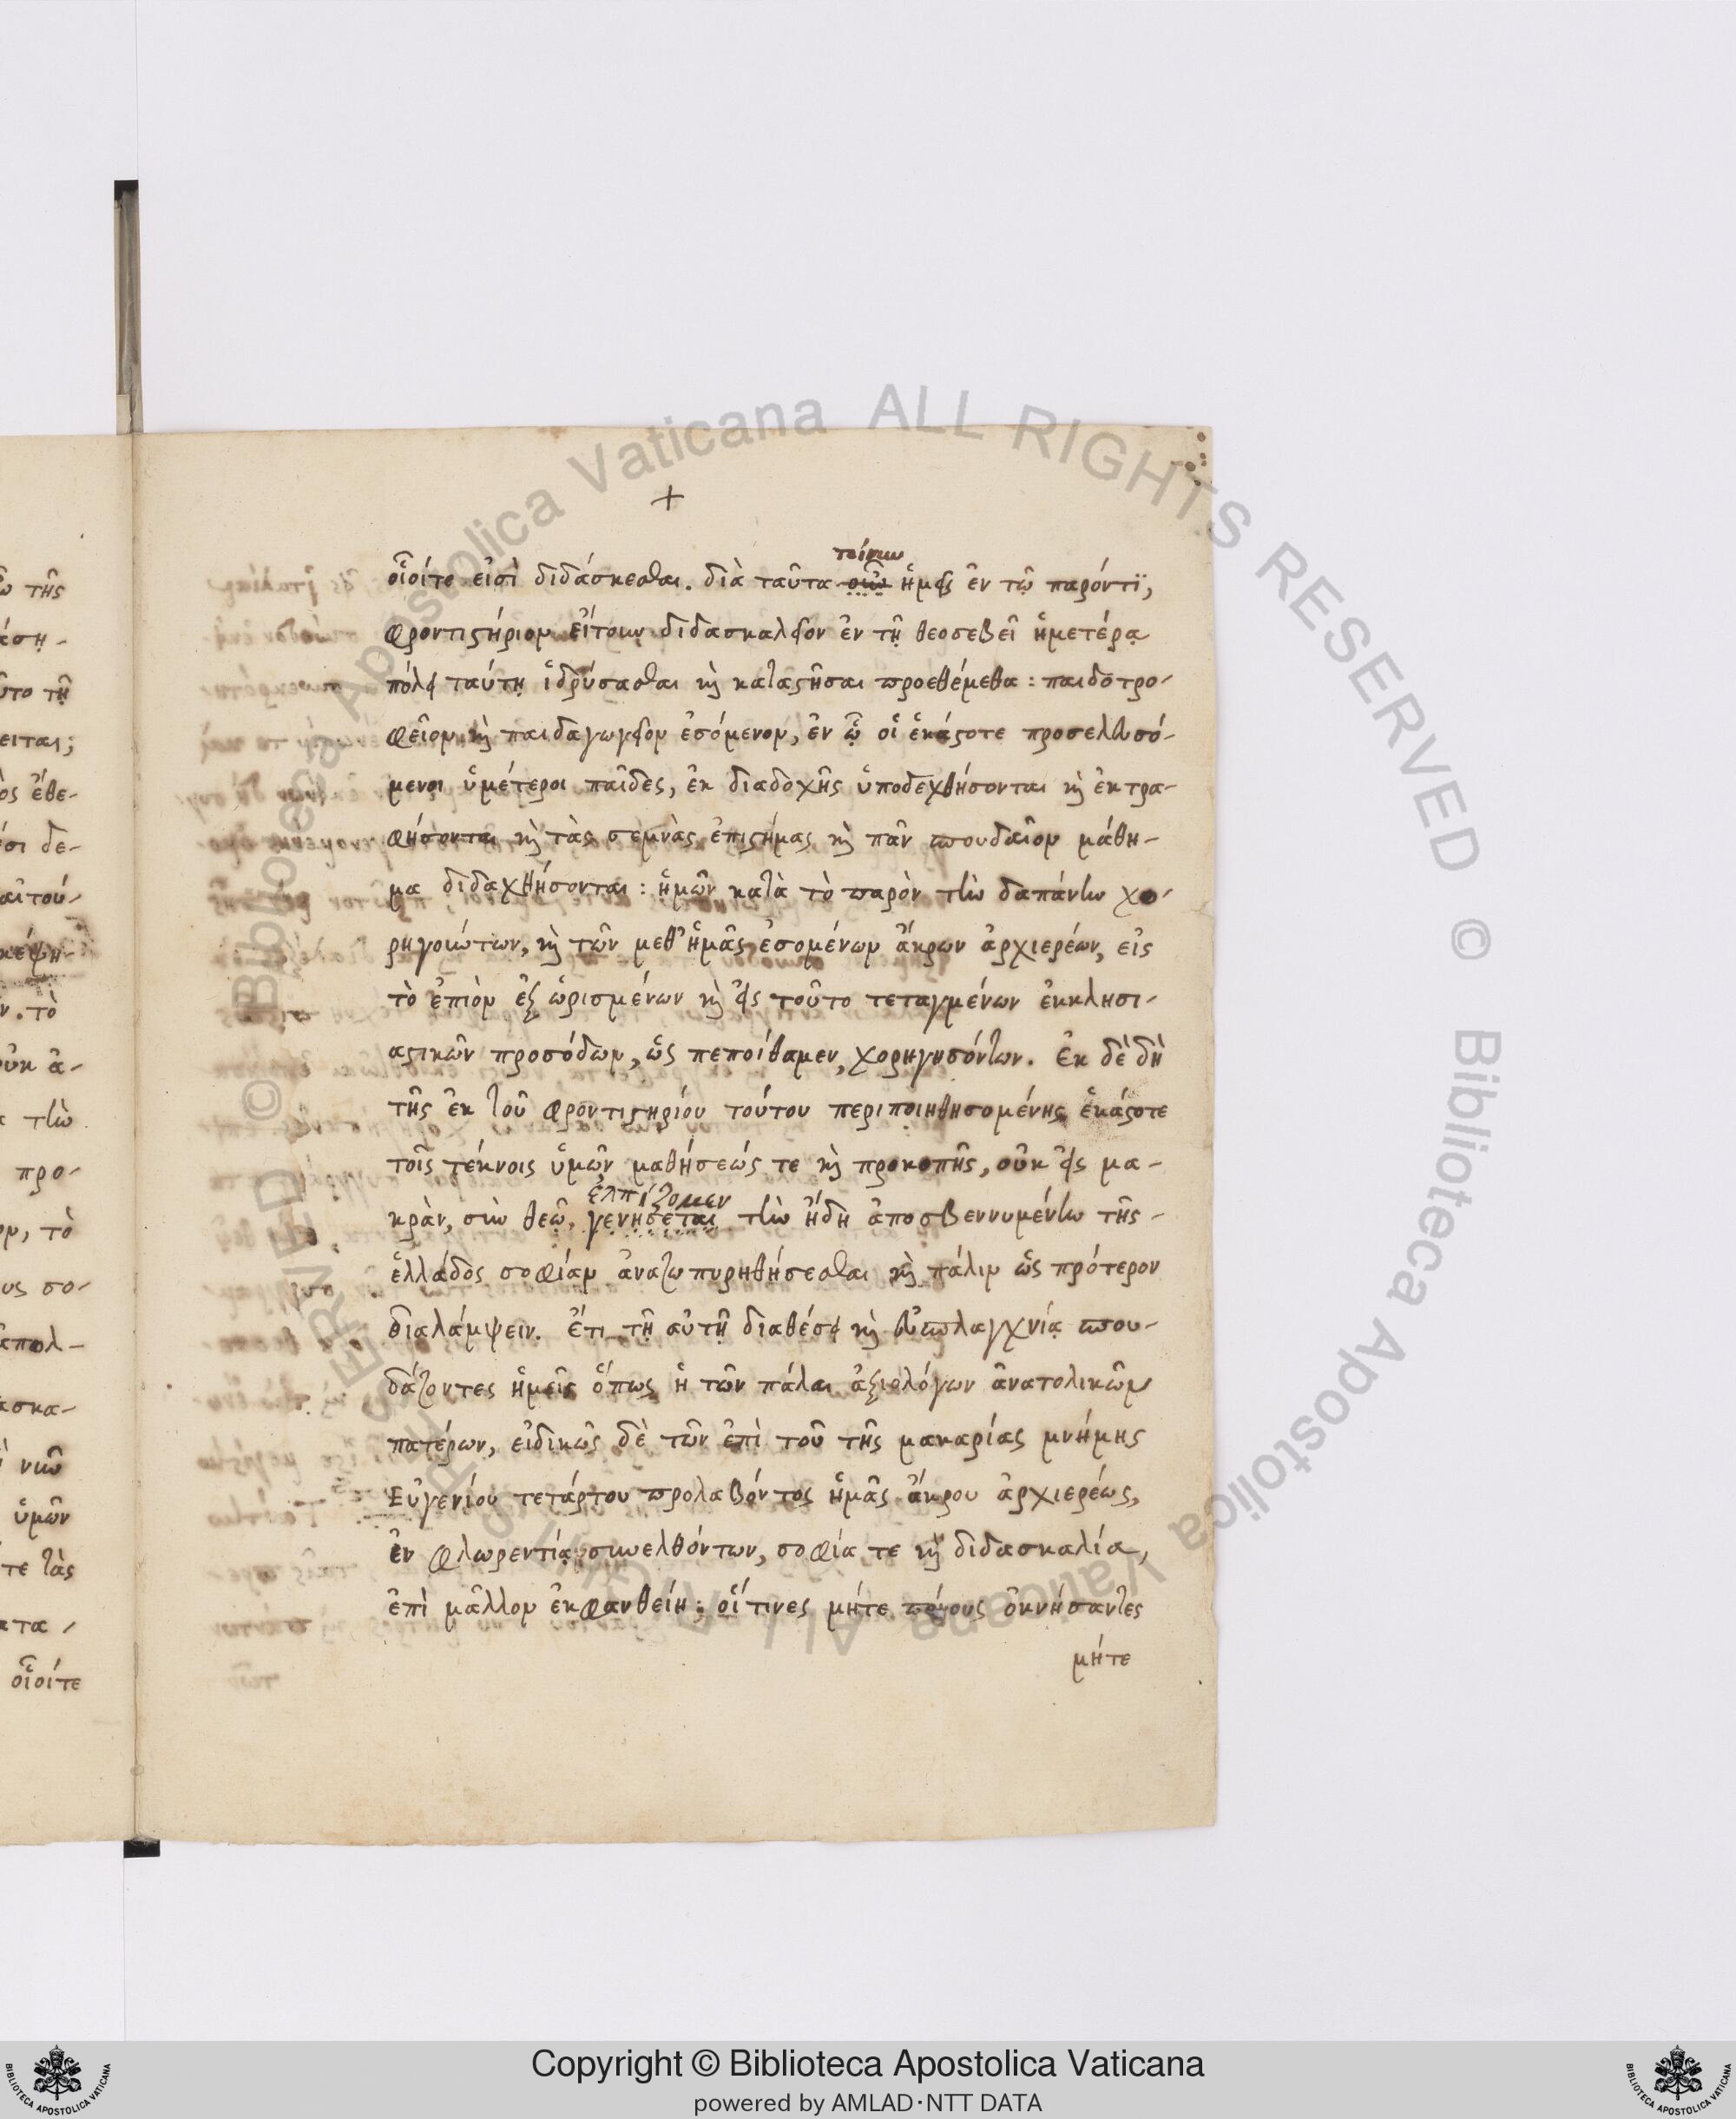 +
τοίνυν
οἷοίτε εἰσὶ διδάσκεσθαι. διὰ ταῦτα οὖν ἡμεῖς ἐν τῷ παρόντϊ,
φροντιστήριον εἴτουν διδασκαλεῖον ἐν τῇ θεοσεβεῖ ἡμετέρᾳ
πόλει ταύτῃ ἱδρύσασθαι καὶ καταστῆσαι προεθέμεθα : παιδοτρο-
φεῖον καὶ παιδαγωγεῖον ἐσόμενον, ἐν ᾧ οἱ ἑκάστοτε προσελευσό-
μενοι ὑμέτεροι παῖδες, ἐκ διαδοχῆς ὑποδεχθήσονται καὶ ἐκτρα-
φήσονται καὶ τὰς σεμνὰς ἐπιστήμας καὶ πᾶν σπουδαῖον μάθη-
μα διδαχθήσονται : ἡμῶν κατὰ τὸ παρὸν τὴν δαπάνην χο-
ρηγούντων, καὶ τῶν μεθ' ἡμᾶς ἐσομένων ἄκρων ἀρχιερέων, εἰς
τὸ ἐπιὸν ἐξ ὡρισμένων καὶ εἰς τοῦτο τεταγμένων ἐκκλησι-
αστικῶν προσόδων, ὡς πεποίθαμεν, χορηγησόντων. ἐκ δὲ δὴ
τῆς ἐκ τοῦ φροντιστηρίου τούτου περιποιηθησομένης ἑκάστοτε
τοῖς τέκνοις ὑμῶν μαθήσεώς τε καὶ προκοπῆς, οὐκ εἰς μα-
ἐλπίζομεν
κρὰν, σὺν θεῷ, γενήσεται τὴν ἤδη ἀποσβεννυμένην τῆς
ἑλλάδος σοφίαν ἀναζωπυρηθήσεσθαι καὶ πάλιν ὡς πρότερον
διαλάμψειν. ἔτι τῇ αὐτῇ διαθέσει καὶ εὐσπλαγχνίᾳ σπου-
δάζοντες ἡμεῖς ὅπως ἡ τῶν πάλαι ἀξιολόγων ἀνατολικῶν
πατέρων, εἰδικῶς δὲ τῶν ἐπὶ τοῦ τῆς μακαρίας μνήμης
Εὐγενίου τετάρτου προλαβόντος ἡμᾶς ἄκρου ἀρχιερέως,
ἐν φλωρεντίᾳ συνελθόντων, σοφία τε καὶ διδασκαλία,
ἐπὶ μᾶλλον ἐκφανθείη ; οἵτινες μήτε πόνους ὀκνήσαντες
μήτε
Copyright © Biblioteca Apostolica Vaticana
powered by AMLAD·NTT DATA